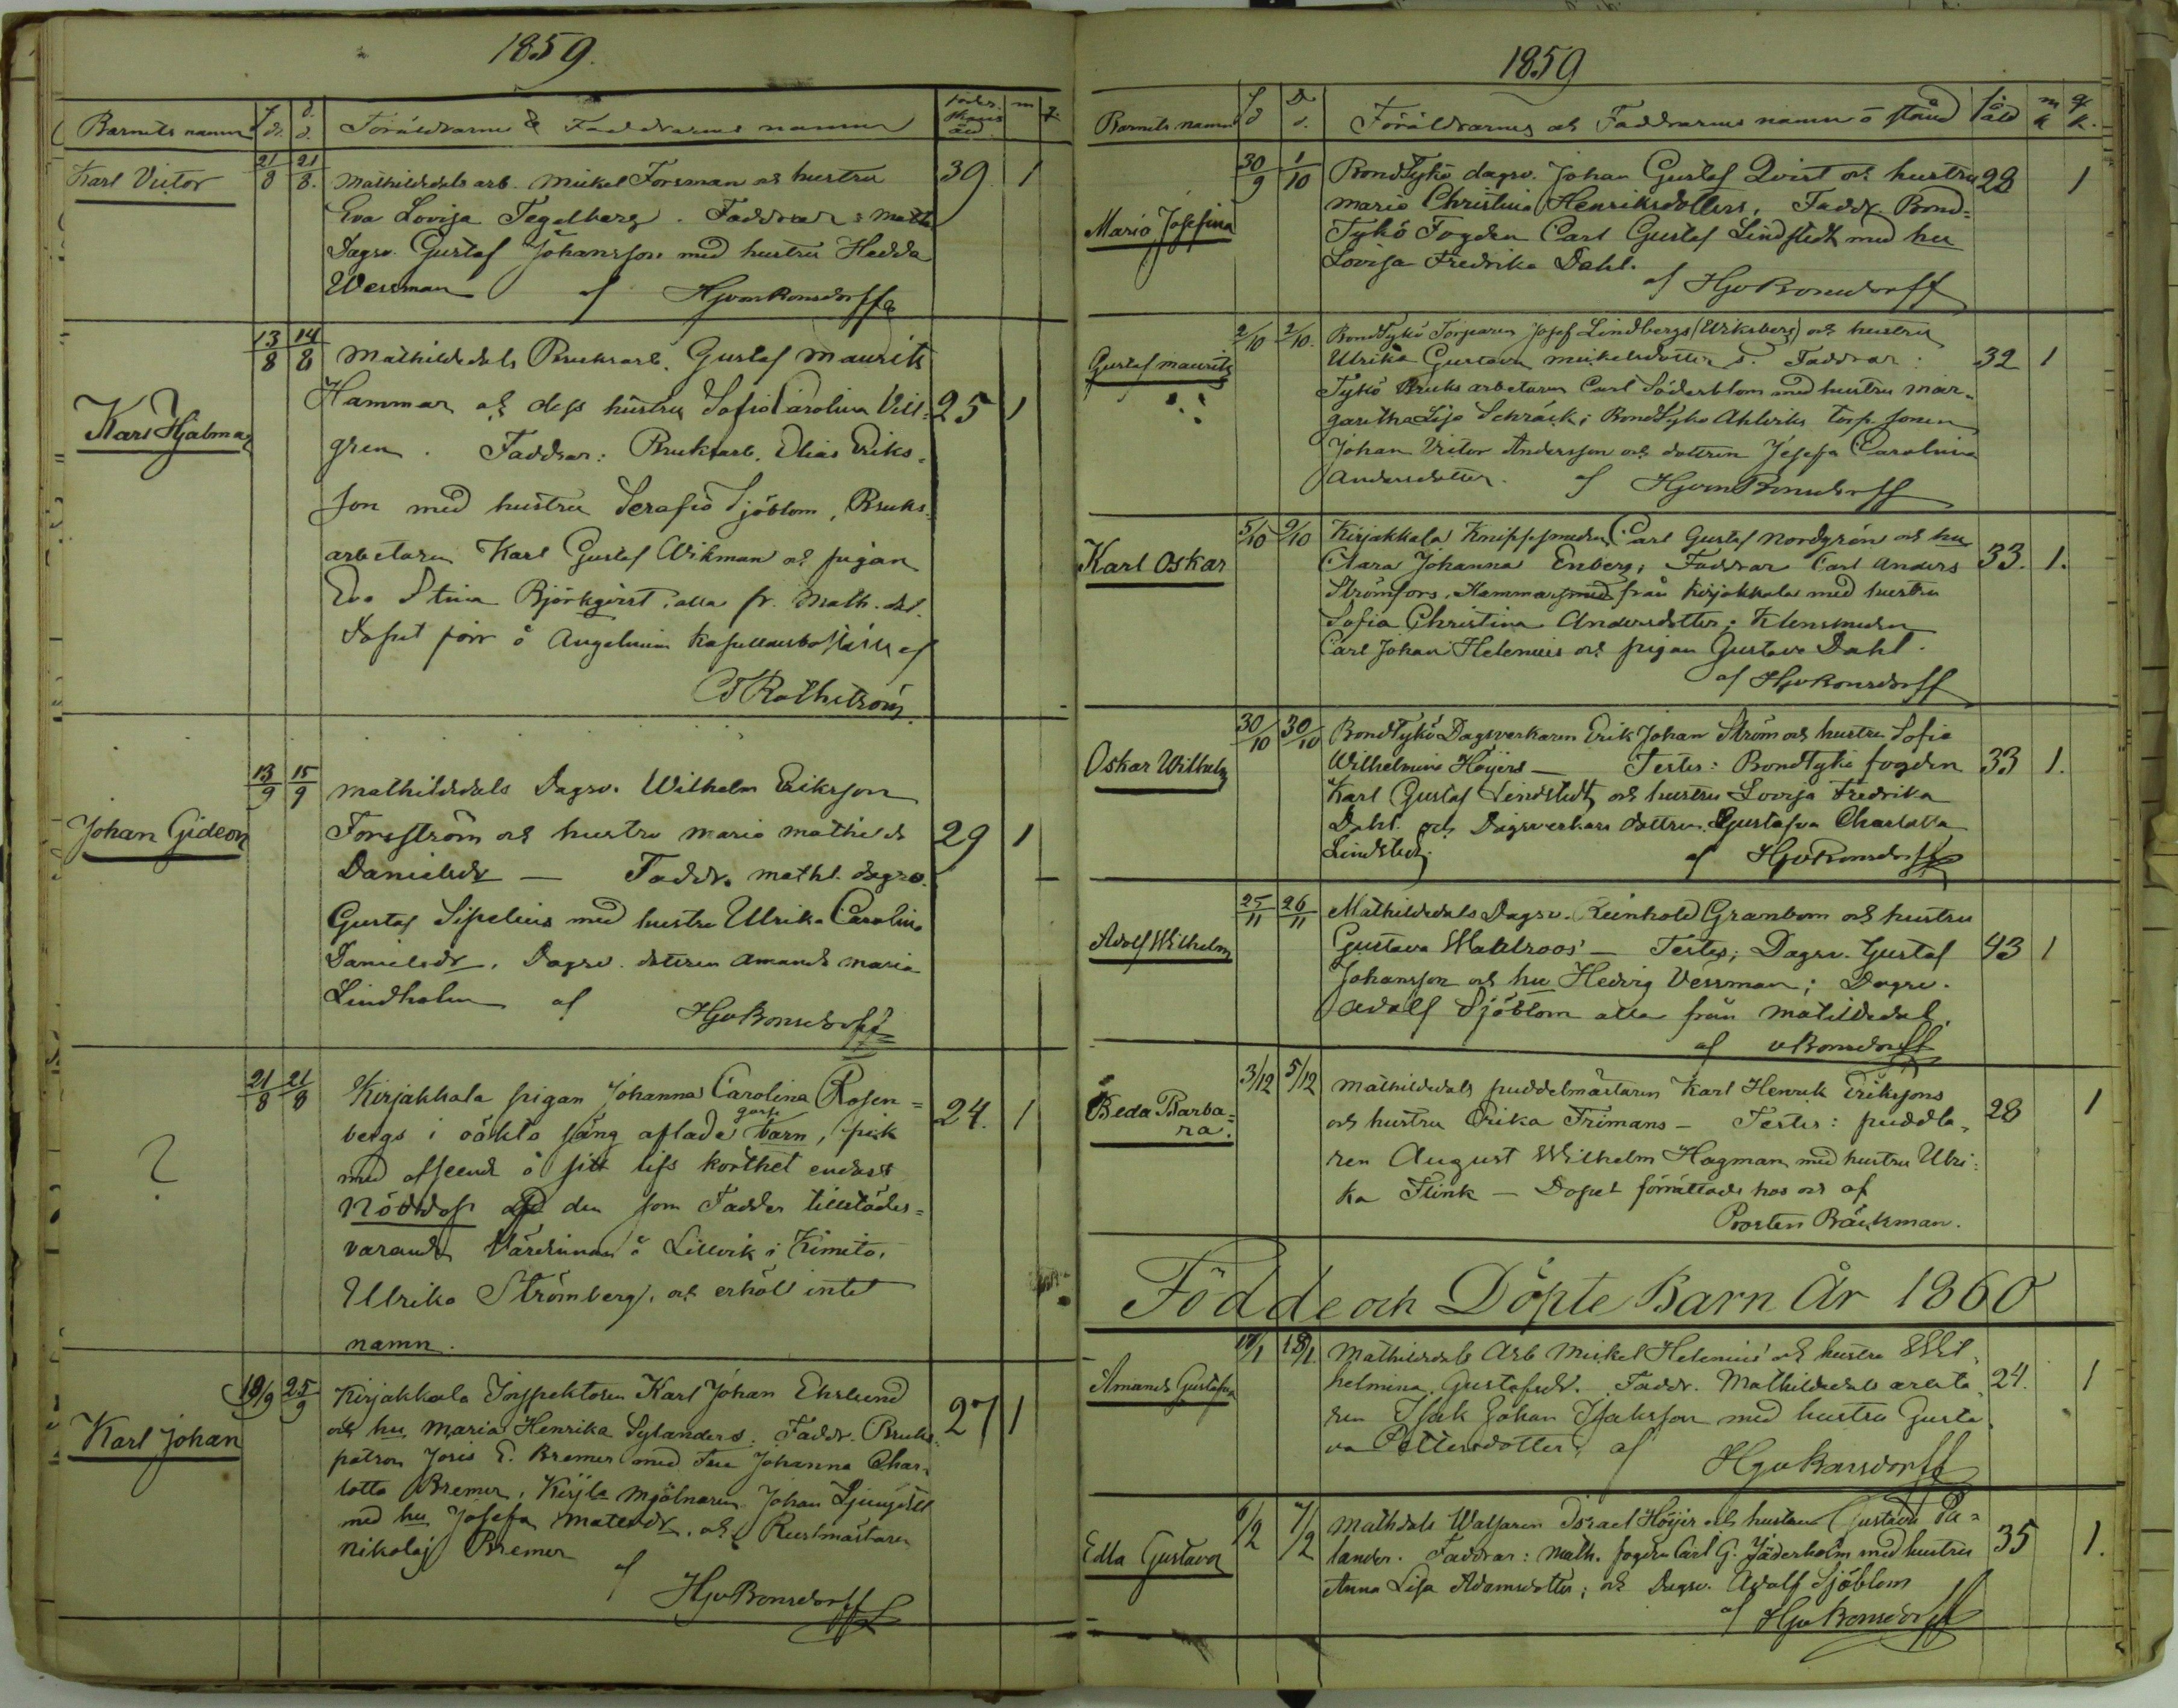 1859.
Barnets namn f. d. d. d. Föräldrarnes & Faddrarnes namn m
Karl Victor 21/8 21/8. Mathildedals arb. Mickel Forsman och hustru 39. 1
Eva Lovisa Tegelberg. Faddrar: Math
Dagsv. Gustaf Johansson med hustru Hedda
Wessman af HJvonBonsdorff
Karl Hjalmar 13/8 14/8 Mathildedals Bruksarb. Gustaf Maurits
Hammar och dess hustru Sofia Carolina Vill= 25 1
gren. Faddrar: Bruksarb. Elias Eriks=
son med hustru Serafia Sjöblom, Bruks=
arbetaren Karl Gustaf Wikman och pigan
Eva Stina Björkqvist, alla fr. Math. dal.
Dopet förr. å Angelniemi af
Johan Gideon 13/9 15/9 Mathildedals Dagsv. Wilhelm Eriksson
Forsström och hustru Maria Mathilda 29 1
Danielsdr — Faddr. Mathl. dagsv.
Gustaf Sipelius med hustru Ulrika Carolina
Danielsdr, Dagsv. dottren Amanda Maria
Lindholm af HJvBonsdorff
? 21/8 21/8 Kirjakkala pigan Johanna Carolina Rosen= 24. 1
bergs i oäkta säng aflade gosse barn, fick
med afseende å sitt lifs korthet endast
Nöddop af den som Fadder tillstädes=
varande Värdinnan å Lillvik i Kimito,
Ulrika Strömberg, och erhöll intet
namn.
Karl Johan 19/9 25/9 Kirjakkala Inspektoren Karl Johan Ekelund 27 1
och hu Maria Henrika Sylanders. Faddr. Bruks=
patron Joris E. Bremer med Fru Johanna Char=
lotta Bremer, Kirjla Mjölnaren Johan Ljungqvist
med hu Josefa Matsdr, och Rustmästaren
Nikolaj Bremer
af HJvBonsdorff
1859
Barnets namn f d D d. Föräldrarnes och Faddrarnes namn o stånd m k q k.
Maria Josefina 30/9 1/10 BondTykö dagsv. Johan Gustaf Qvist och hustru 28 1
Maria Christina Henriksdotters. Faddr. Bond=
Tykö Fogden Carl Gustaf Lindstedt med hu
Lovisa Fredrika Dahl.
af HJvBonsdorff
Gustaf Maurits 2/10 2/10. BondTykö Torparen Josef Lindbergs (Wiksberg) och hustru
Ulrika Gustava Mickelsdotters. Faddrar: 32 1
Tykö Bruks arbetaren Carl Söderblom med hustru Mar=
garetha Lisa Schräck; BondTykö Ahlviks torp. sonen
Johan Victor Andersson och dottren Josefa Carolina
Andersdotter. af HJvonBonsdorff
Karl Oskar 5/10 9/10 Kirjakkala Knippsmeden Carl Gustaf Nordgrén och hu
Clara Johanna Enberg; Faddrar Carl Anders 33. 1.
Strömfors, Hammarsmed från Kirjakkala med hustru
Sofia Christina Andersdotter; Klensmeden
Carl Johan Helenius och pigan Gustava Dahl.
af HJvBonsdorff
Oskar Wilhelm 30/10 30/10 BondTykö Dagsverkaren Erik Johan Ström och hustru Sofia
Wilhelmina Höijers — Testes: BondTykö fogden 33 1.
Karl Gustaf Lindstedt och hustru Lovisa Fredrika
Dahl. och Dagsverkare dottren Gustafva Charlotta
Lindstedt. af HJvBonsdorff
Adolf Wilhelm 25/11 26/11 Mathildedals Dagsv. Reinhold Granbom och hustru
Gustava Wahlroos — Testes; Dagsv. Gustaf 43 1
Johansson och hu Hedvig Vessman; Dagsv.
Adolf Sjöblom alla från Matildedal.
af vBonsdorff
Beda Barba= 3/12 5/12 Mathildedals puddelmästaren Karl Henrik Erikssons
ra. och hustru Erika Frimans — Testes: puddla= 28 1
ren August Wilhelm Hagman med hustru Ulri=
ka Flink — Dopet förrättades hos och af
Prosten Bäckman.
Födde och Döpte Barn År 1860
Amanda Gustafva 17/1 18/1. Mathildedals Arb. Mickel Helenius och hustru Wil=
helmina Gustafsdr. Faddr. Mathildedals arbeta= 24. 1
ren Isak Johan Isaksson med hustru Gusta=
va Pettersdotter, af HJvBonsdorff
Edla Gustava 6/2 7/2 Mathdals Walsaren Israel Höijer och hustru Gustava Pa=
lander. Faddrar: Math. fogden Carl G. Jäderholm med hustru 35 1.
Anna Lisa Adamsdotter; och Dagsv. Adolf Sjöblom
af HJvBonsdorff